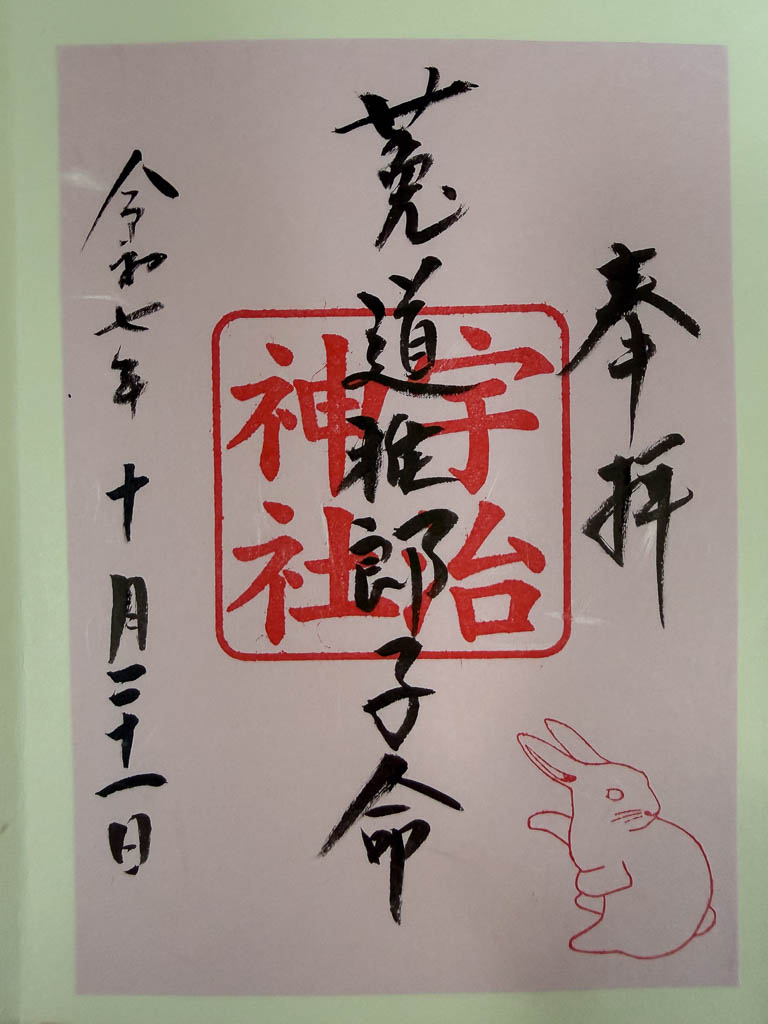 奉拝
菟道稚郎子命
宇治
神社
令和七年十月二十一日